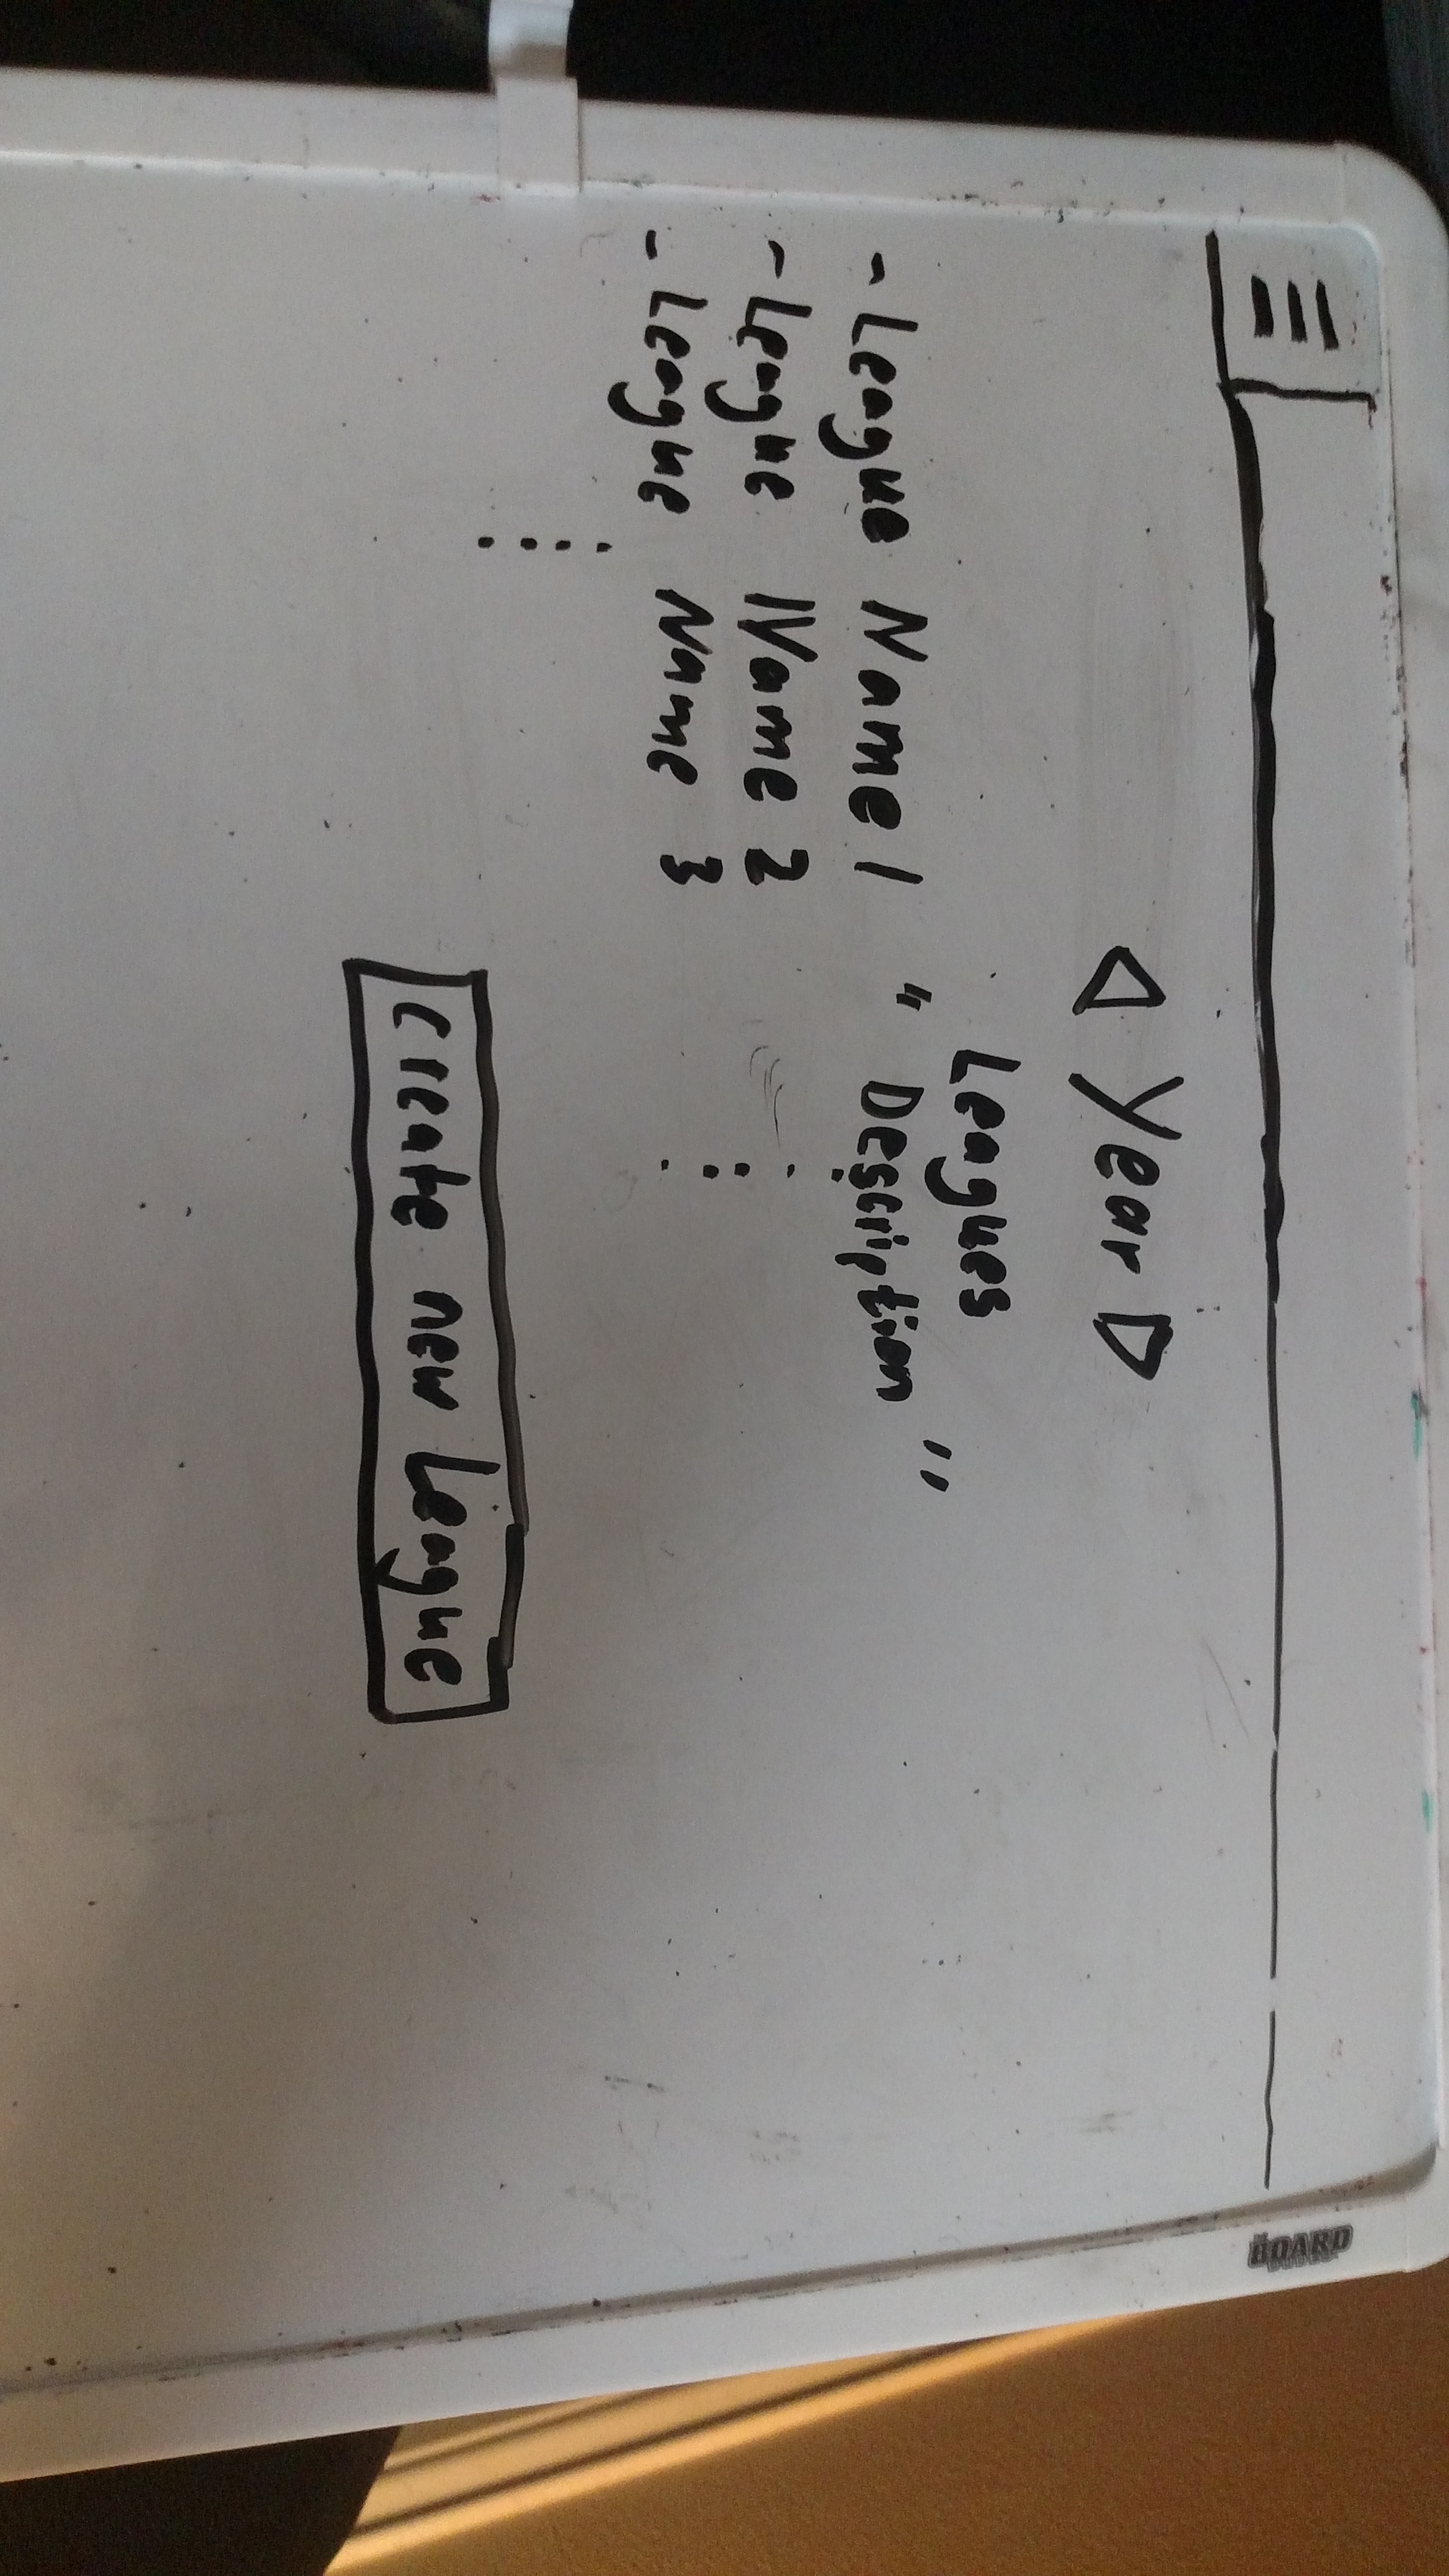 Year
Leagues
- League Name 1 " Description "
- League Name 2
- League Name 3
create new League
üBOARD